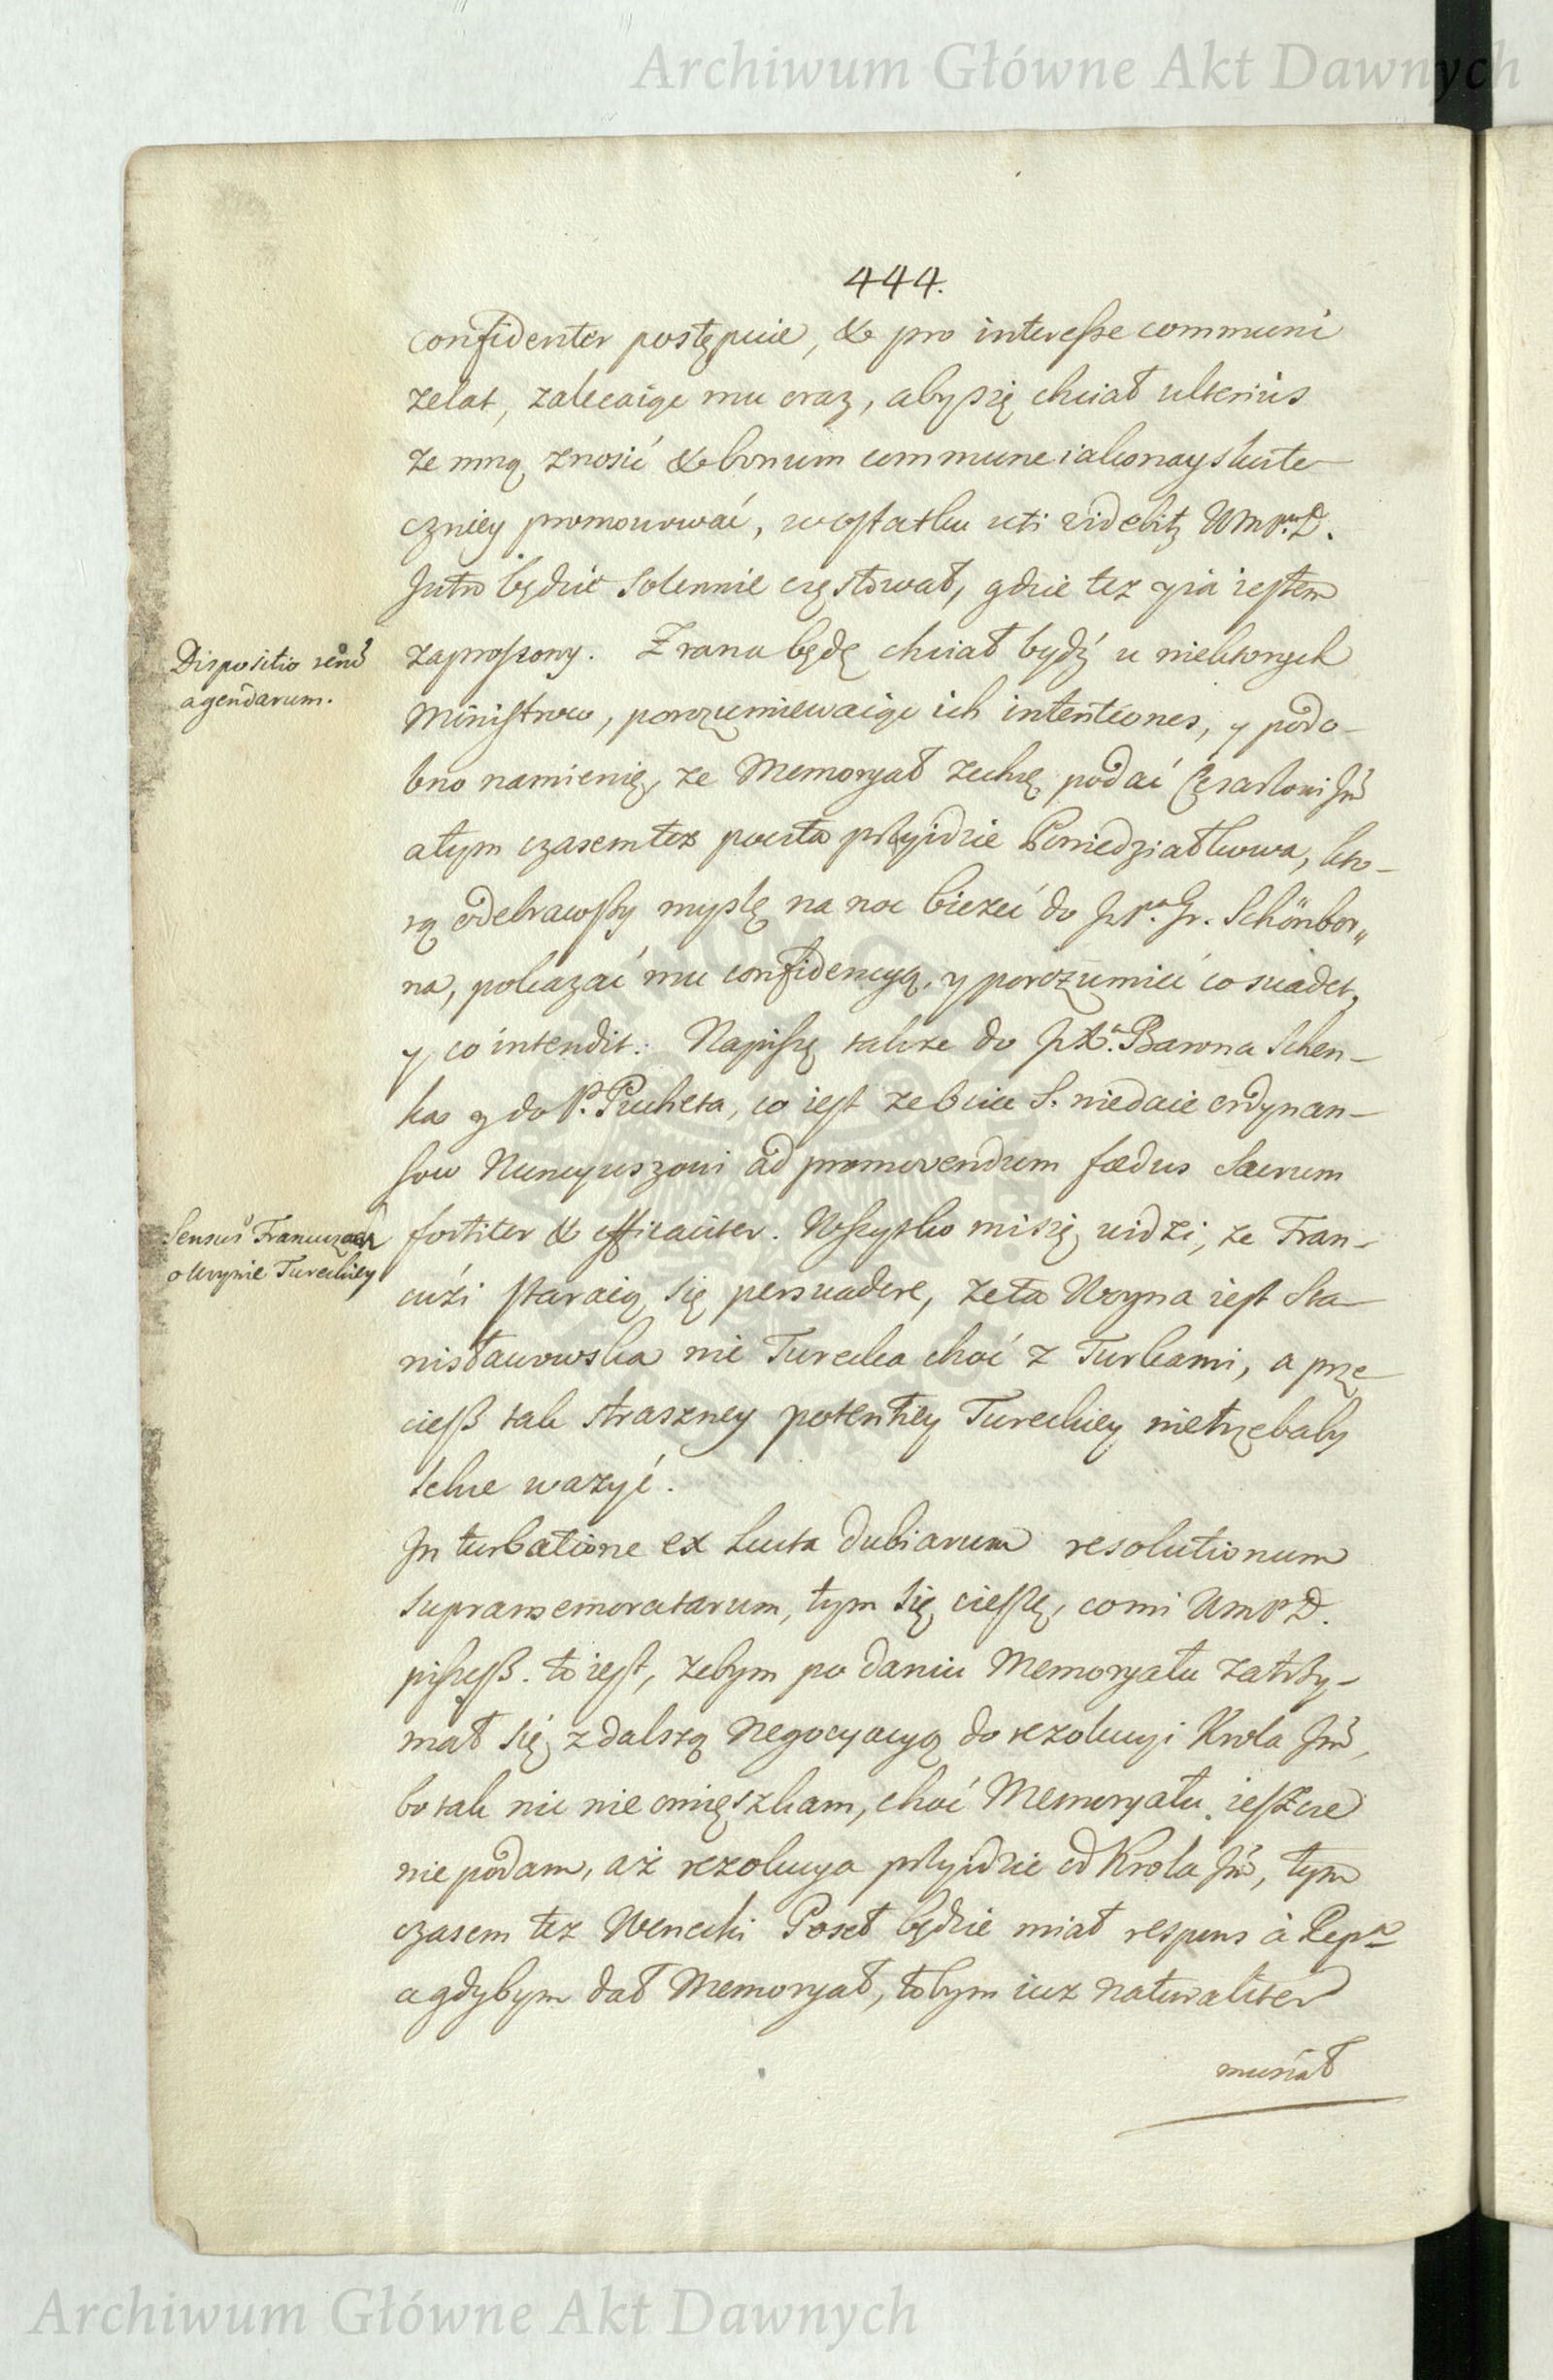 Archiwum Główne Akt Dawnych
444.
confidenter postępuie, & pro interesse communi
zelat, zalecaiąc mu oraz, aby się chciał ulterius
ze mną znosić & bonum commune iako nayskute-
czniey promowować, w ostatku uti videbitz WmPa D.
Jutro będzie solennie częstował, gdzie tez y ia iestem
zaproszony. Zrana będę chciał bydź u niektorych
Dispositio rerũ
agendarum.
Ministrow, porozumiewaiąc ich intentiones, y podo-
bno namienię, ze Memoryał zechcę podać Cesarzowi Jm̃
a tym czasem tez poczta przyidzie Poniedziałkowa, kto-
rą odebrawszy myslę na noc biezeć do JPa. Gr. Schönbor„
na, pokazać mu confidencyą, y porozumieć co suadet,
y co intendit. Napiszę takze do JXa. Barona Schen-
ka y do P. Pucheta, co iest ze Oćiec S. niedaie ordynan-
sow Nuncyuszowi ad promovendum fœdus Sacrum
Sensus Francuzow
o Woynie Tureckiey
fortiter & efficaciter. Wszystko mi się widzi, ze Fran-
cuźi staraią się persuadere, ze ta Woyna iest Sta-
nisławowska nie Turecka choć z Turkami, a prze-
cieß tak straszney potentiey Tureckiey nietrzebaby
lekce wazyć.
In turbatione ex luctu dubiarum resolutionum
supramemoratarum, tym się cieszę, co mi WmPD.
piszesß. to iest, zebym po daniu Memoryału zatrzy-
mał się z dalszą Negocyacyą do rezolucyi Krola Jm̃,
bo tak nic nie omięszkam, choć Memoryału ieszcze
nie podam, aż rezolucya przyidzie od Krola Jm̃, tym
czasem tez Wenecki Poseł będzie miał respons à Repca
a gdybym dał Memoryał, tobym iuz naturaliter
musiał
Archiwum Główne Akt Dawnych